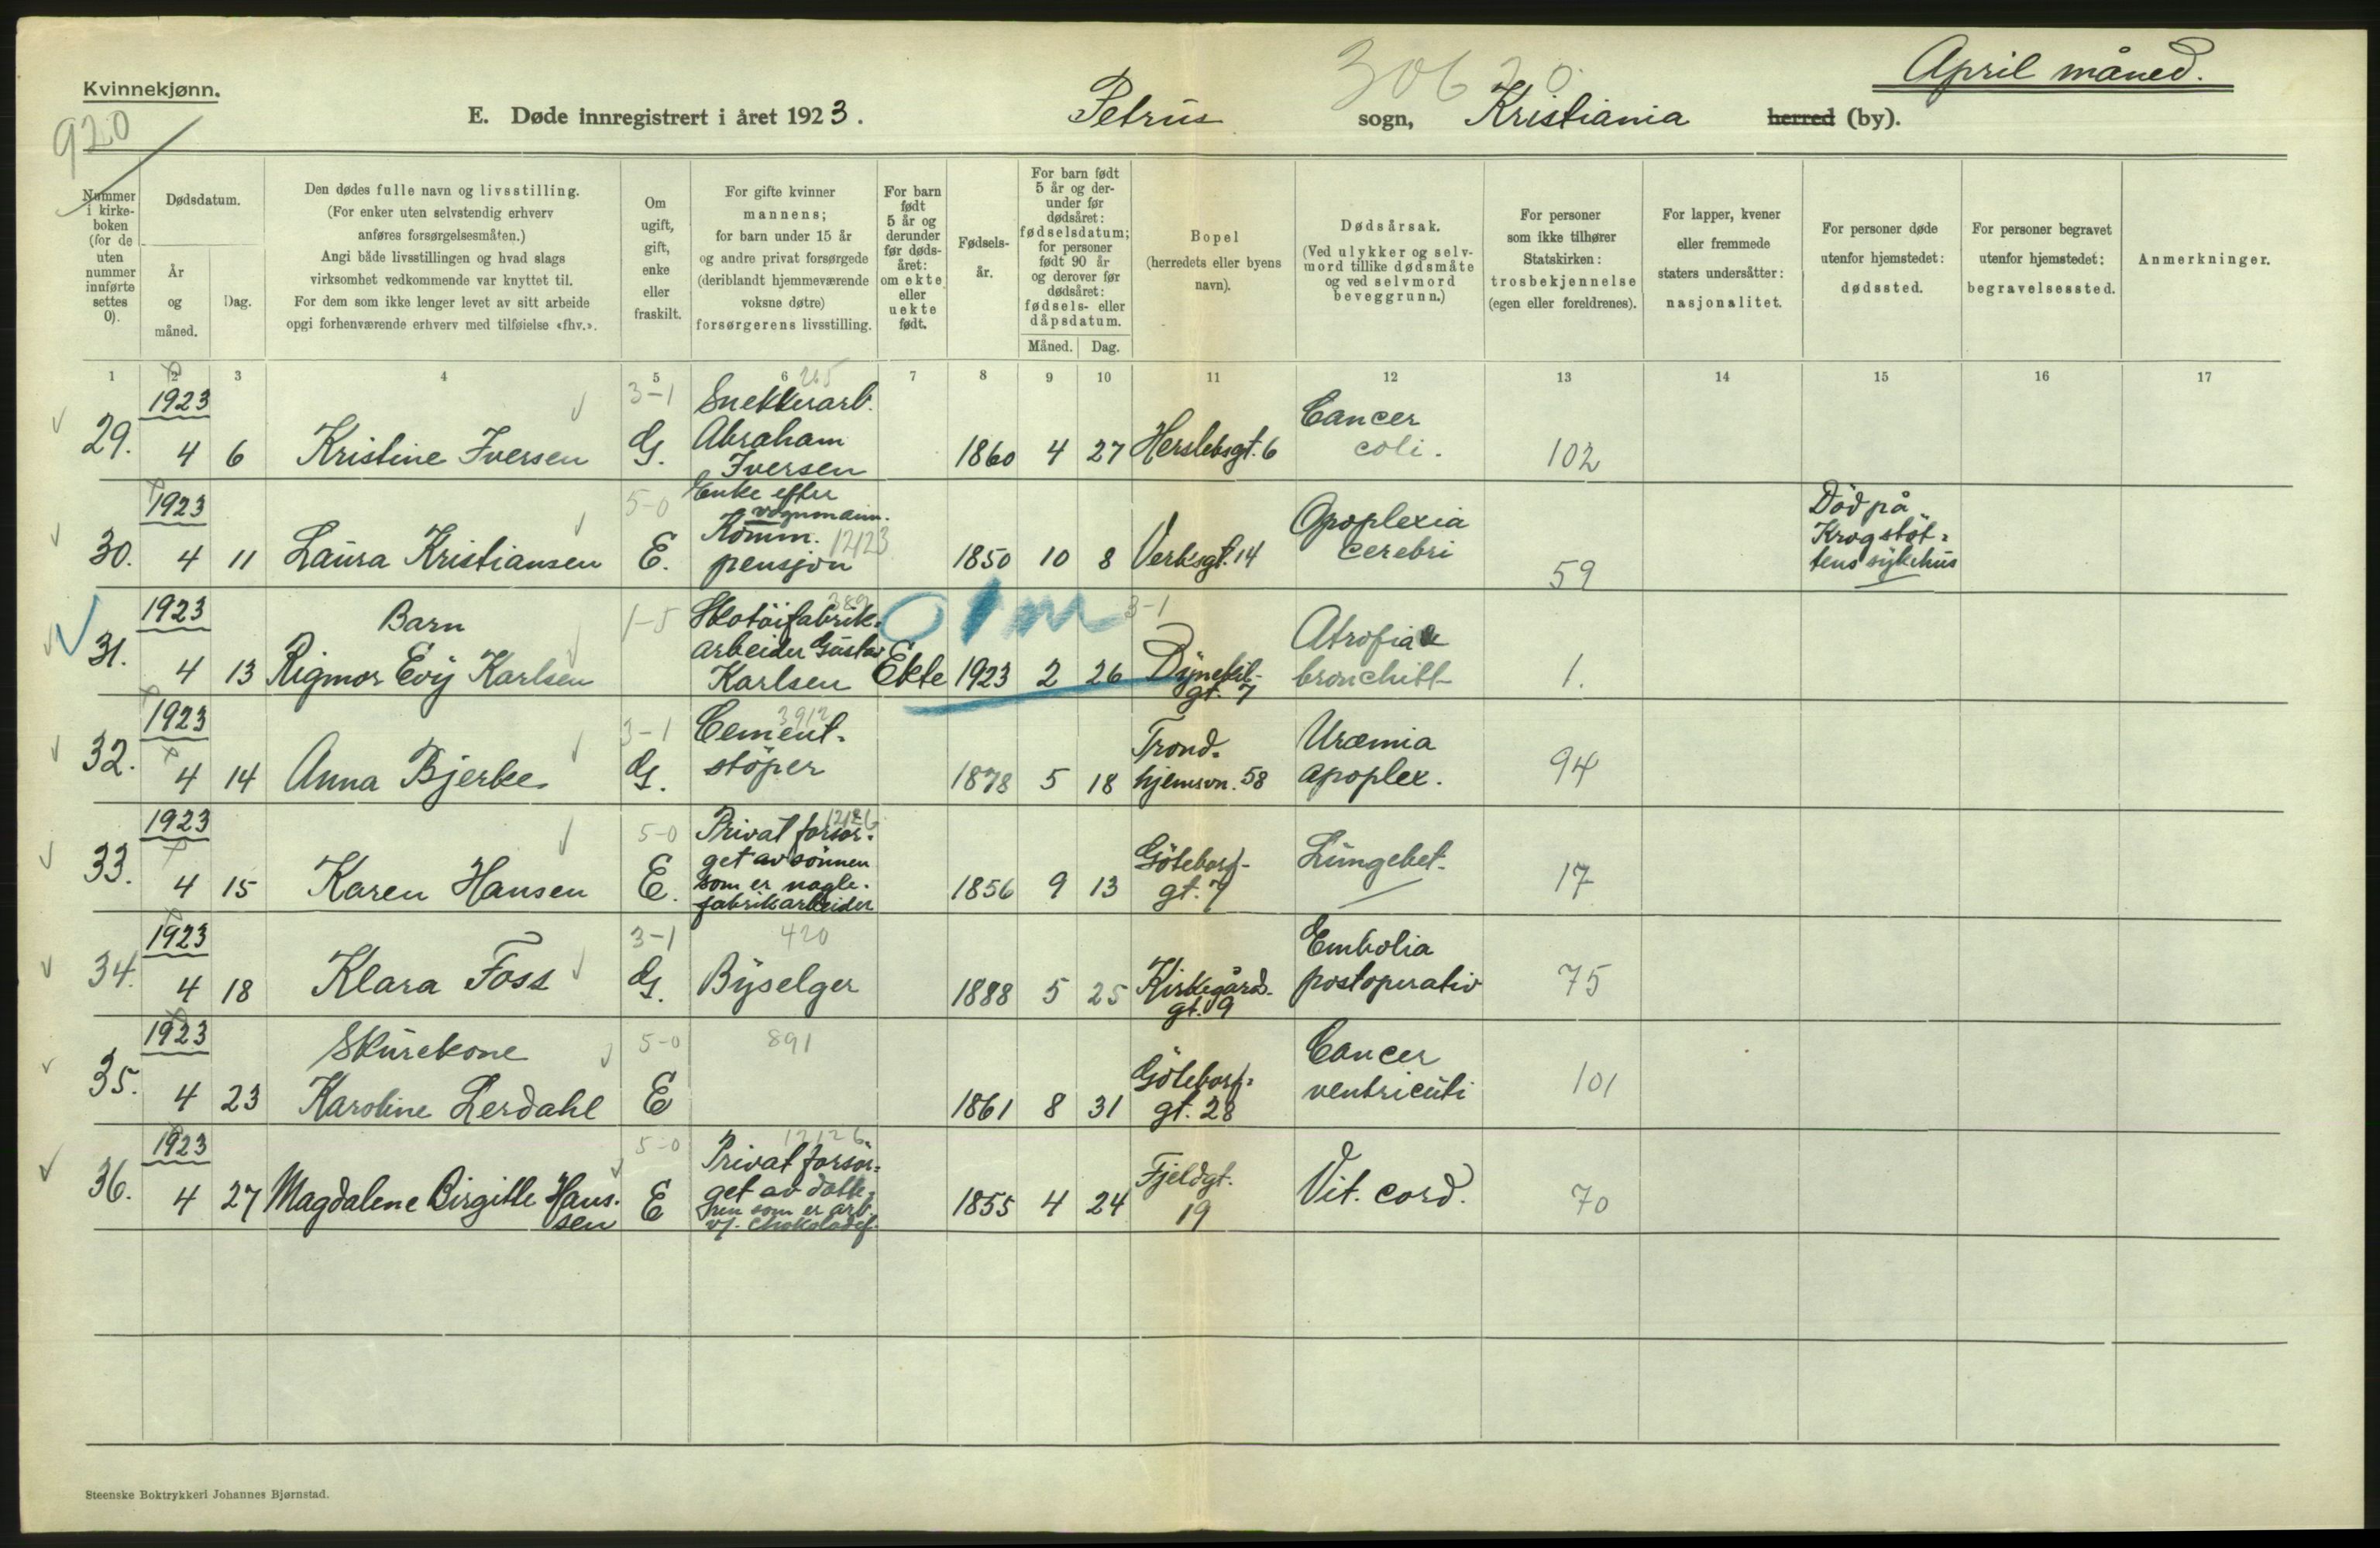 Kvinnekjønn.
920
E. Døde innregistrert i året 1923.
Petrus sogn, Kristiania herred (by).
306 20
April måned.
Nummer i kirke-boken (for de uten nummer innførte settes 0).
Dødsdatum.
År og måned.
Dag.
Den dødes fulle navn og livsstilling.
(For enker uten selvstendig erhverv
anføres forsørgelsesmåten.)
Angi både livsstillingen og hvad slags
virksomhet vedkommende var knyttet til.
For dem som ikke lenger levet av sitt arbeide
opgi forhenværende erhverv med tilføielse «fhv.».
Om
ugift,
gift,
enke
eller
fraskilt.
For gifte kvinner
mannens;
for barn under 15 år
og andre privat forsørgede
(deriblandt hjemmeværende
voksne døtre)
forsørgerens livsstilling.
For barn
født
5 år og
derunder
før døds-
året:
om ekte
eller
uekte
født.
Fødsels-
år.
For barn født
5 år og der-
under før
dødsåret:
fødselsdatum;
for personer
født 90 år
og derover før
dødsåret:
fødsels- eller
dåpsdatum.
Måned. Dag.
Bopel
(herredets eller byens
navn).
Dødsårsak.
(Ved ulykker og selv-
mord tillike dødsmåte
og ved selvmord
beveggrunn.)
For personer
som ikke tilhører
Statskirken:
trosbekjennelse
(egen eller foreldrenes).
For lapper, kvener
eller fremmede
staters undersåtter:
nasjonalitet.
For personer døde
utenfor hjemstedet:
dødssted.
For personer begravet
utenfor hjemstedet:
begravelsessted.
Anmerkninger.
1 2 3 4 5 6 7 8 9 10 11 12 13 14 15 16 17
29.
1923
4 6
Kristine Iversen
3-1
G.
265
Snekkerarb.
Abraham
Iversen
1860 4 27
Herslebsgt. 6
Cancer
coli.
102
30.
1923
4 11
Laura Kristiansen
5-0
E.
Enke efter
vognmann.
Komm.
pensjon
12123
1850 10 8
Verksgt. 14
Apoplexia
cerebri
59
Død på
Krogstøt=
tens sykehus
31.
1923
4 13
Barn
Rigmor Evy Karlsen
1-5
389
Skotøifabrik=
arbeider Gustav
Karlsen
Ekte
1923 2 26
0 1 m
3-1
Dynekil-
gt. 7
Atrofia &
bronchitt
1.
32.
1923
4 14
Anna Bjerke
3-1
G.
3912
Cement=
støper
1878 5 18
Trond=
hjemsvn. 58
Uræmia
apoplex.
94
33.
1923
4 15
Karen Hansen
5-0
E.
12126
Privat forsør=
get av sønnen
som er nagle-
fabrikarbeider
1856 9 13
Göteborg-
gt. 7
Lungebet.
17
34.
1923
4 18
Klara Foss
3-1
G.
420
Byselger
1888 5 25
Kirkegård-
gt. 9
Embolia
postoperativ
75
35.
1923
4 23
Skurekone
Karoline Lerdahl
5-0
E
891
1861 8 31
Göteborg=
gt. 28
Cancer
ventriculi
101
36.
1923
4 27
Magdalene Birgitte Han-
sen
5-0
E
12126
Privat forsør=
get av datte=
ren som er arb.
v/. chokoladef.
1855 4 24
Fjeldgt.
19
Vit. cord.
70
Steenske Boktrykkeri Johannes Bjørnstad.